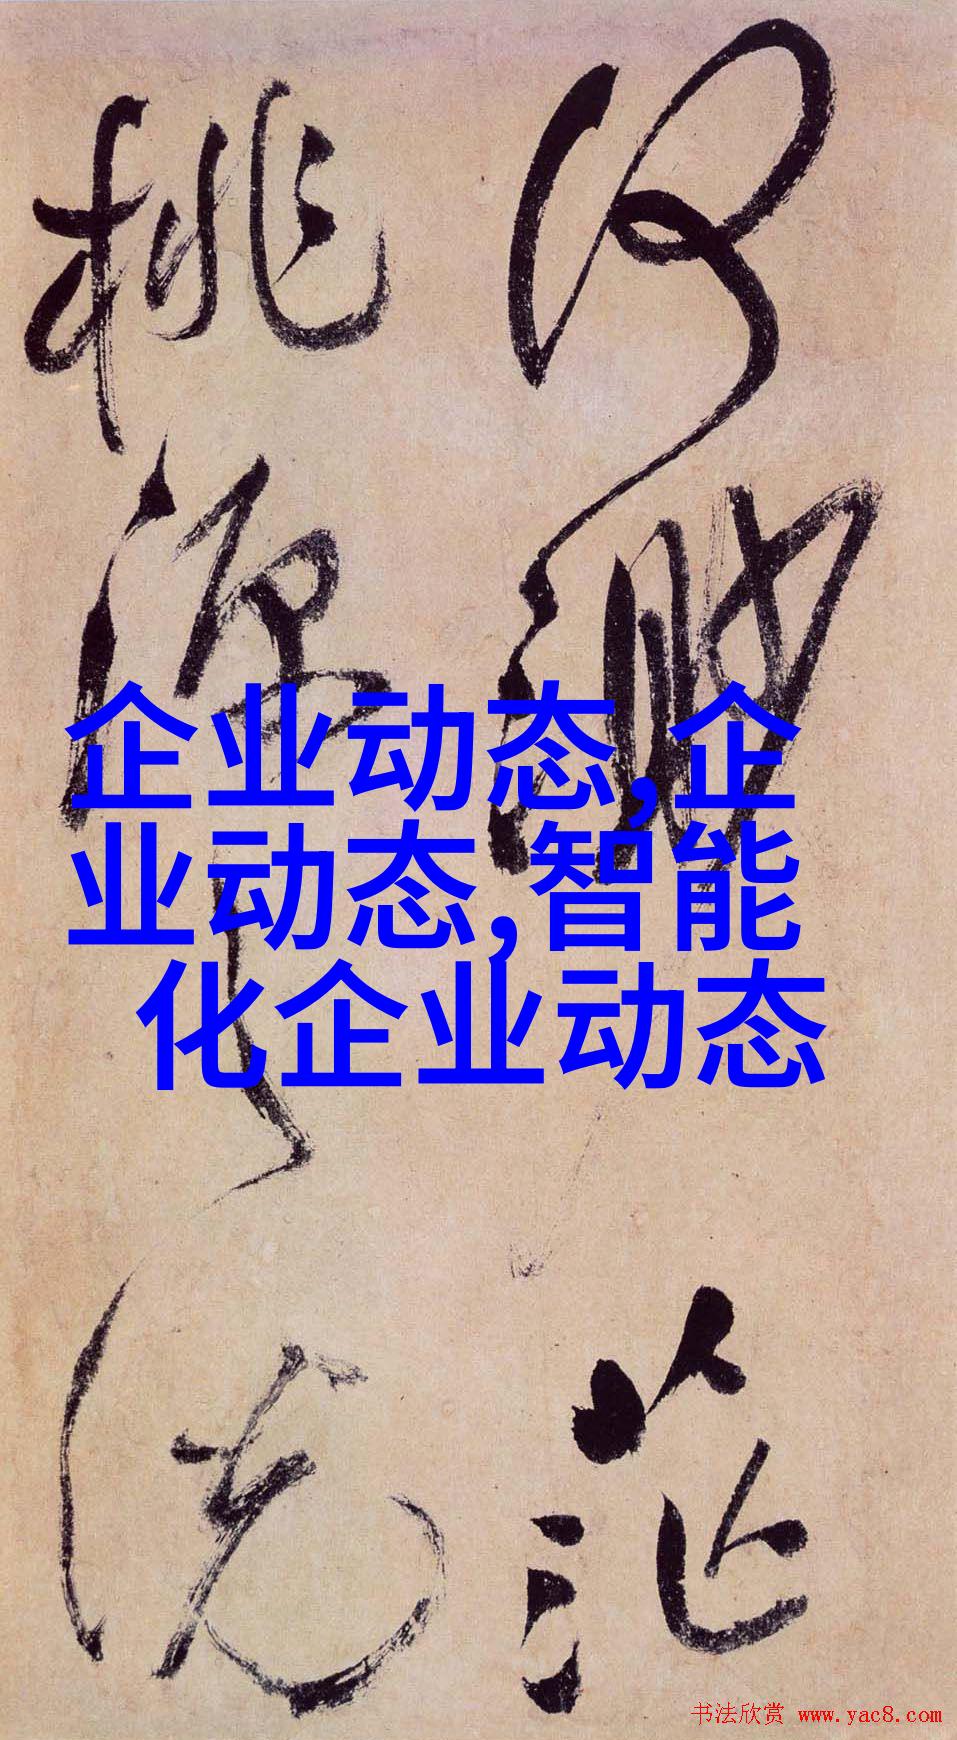 何渺茫
桃源之说
企业动态,企
业动态,智能
化企业动态
书法欣赏 www.yac8.com